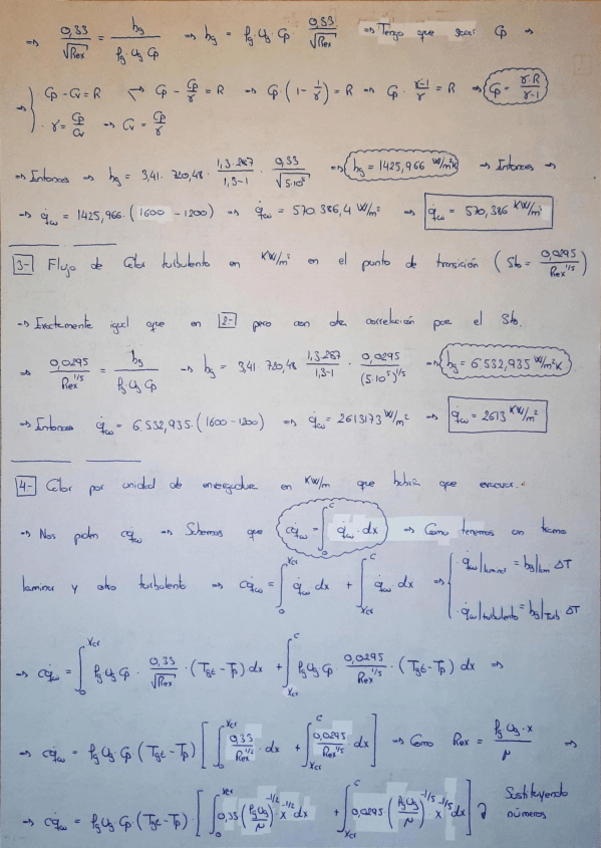 ⇒ 0,33/√Rex = hg/(ρg ug Cp) ⇒ hg = ρg · ug · Cp · 0,33/√Rex ⇒ Tengo que sacar Cp ⇒
⇒ { · Cp - Cv = R → Cp - Cp/γ = R ⇒ Cp · (1 - 1/γ) = R ⇒ Cp · (γ-1)/γ = R ⇒ Cp = γ·R/(γ-1)
· γ = Cp/Cv ⇒ Cv = Cp/γ
⇒ Entonces ⇒ hg = 3,41 · 720,48 · (1,3·287)/(1,3-1) · 0,33/√(5·10⁵) ⇒ hg = 1425,966 W/m²K ⇒ Entonces ⇒
⇒ q̇ω = 1425,966 · (1600 - 1200) ⇒ q̇ω = 570.386,4 W/m² ⇒ q̇ω = 570,386 KW/m²
3- Flujo de Calor turbulento en KW/m² en el punto de transición (Sto = 0,0295/Rex^1/5)
⇒ Exactamente igual que en 2- pero con otra correlación para el Sto.
⇒ 0,0295/Rex^1/5 = hg/(ρg ug Cp) ⇒ hg = 3,41 · 720,48 · (1,3·287)/(1,3-1) · 0,0295/(5·10⁵)^1/5 ⇒ hg = 6.532,935 W/m²K
⇒ Entonces q̇ω = 6.532,935 · (1600 - 1200) ⇒ q̇ω = 2613173 W/m² ⇒ q̇ω = 2613 KW/m²
4- Calor por unidad de envergadura en KW/m que habría que evacuar.
⇒ Nos piden cq̇ω ⇒ Sabemos que cq̇ω = ∫₀^c q̇ω · dx ⇒ Como tenemos un tramo
laminar y otro turbulento ⇒ cq̇ω = ∫₀^xcr q̇ω dx + ∫xcr^c q̇ω dx ⇒ { · q̇ω|laminar = hg|lam ΔT
· q̇ω|turbulento = hg|turb ΔT
⇒ cq̇ω = ∫₀^xcr ρg ug Cp · 0,33/√Rex · (Tge - Tp) dx + ∫xcr^c ρg ug Cp · 0,0295/Rex^1/5 · (Tge - Tp) dx ⇒
⇒ cq̇ω = ρg ug Cp (Tge - Tp) [ ∫₀^xcr 0,33/Rex^1/2 · dx + ∫xcr^c 0,0295/Rex^1/5 dx ] ⇒ Como Rex = ρg ug · x/μ ⇒
⇒ cq̇ω = ρg ug Cp · (Tge - Tp) · [ ∫₀^xcr 0,33 (ρg ug/μ)^-1/2 x^-1/2 dx + ∫xcr^c 0,0295 (ρg ug/μ)^-1/5 x^-1/5 dx ] Sustituyendo
números